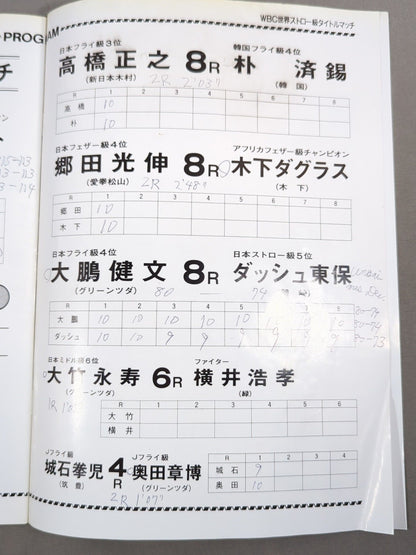 PROGRAM
WBC世界ストロー級タイトルマッチ
日本フライ級3位
韓国フライ級4位
高橋正之 8R 朴 済錫
(新日本木村) 2R 2'03" (韓国)
R 1 2 3 4 5 6 7 8
高橋 10
朴 10
日本フェザー級4位
アフリカフェザー級チャンピオン
郷田光伸 8R 木下ダグラス
(愛拳松山) 2R 2'48" (木下)
R 1 2 3 4 5 6 7 8
郷田 10
木下 10
日本フライ級4位
日本ストロー級5位
大鵬健文 8R ダッシュ東保
(グリーンツダ) 80 74
R 1 2 3 4 5 6 7 8
大鵬 10 10 10 10 10 10 10 10 80-74
ダッシュ 10 10 9 9 9 9 9 80-73
日本ミドル級6位
ファイター
大竹永寿 6R 横井浩孝
(グリーンツダ) (緑)
1R
R 1 2 3 4 5 6
大竹
横井
Jフライ級
Jフライ級
城石拳児 4R 奥田章博
(筑豊) (グリーンツダ)
2R 1'07"
R 1 2 3 4
城石 9
奥田 10